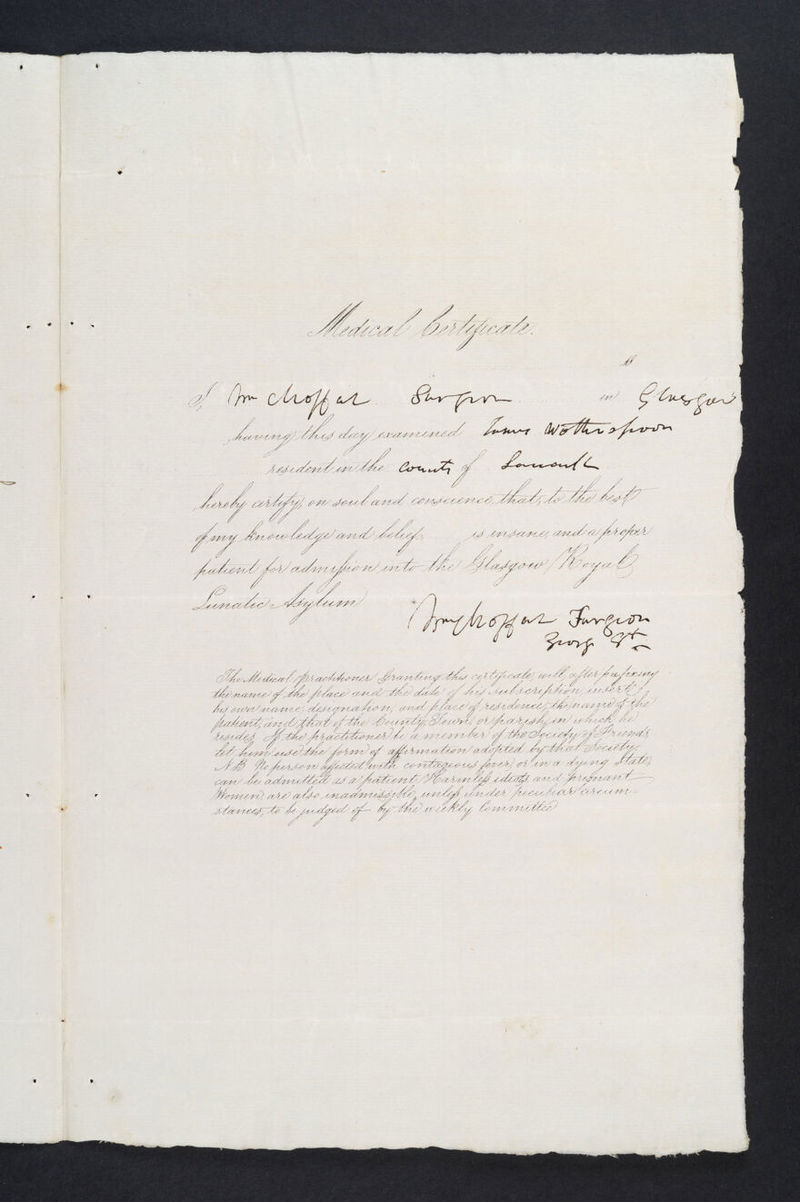 Medical Certificate.
I, Wm Moffat Surgeon in Glasgow
having this day examined James Wotherspoon
resident in the County of Lanark
hereby certify, on soul and conscience, that, to the best
of my knowledge and belief is insane, and a proper
patient for admission into the Glasgow Royal
Lunatic Asylum
Wm Moffat Surgeon
George St
The Medical practitioner Granting this certificate, will, after prefixing
the name of the place and the date of his subscription, insert
his own name, designation, and place of residence, the name of the
patient, and that of the County, Town, or parish, in which he
resides. If the practitioner be a member of the Society of Friends
let him use the form of affirmation adopted by that Society.
N.B. No person affected with contagious fever, or in a dying State,
can be admitted as a patient. Harmless idiots and pregnant
Women are also inadmissible, unless under peculiar circum-
stances, to be judged of by the weekly Committee